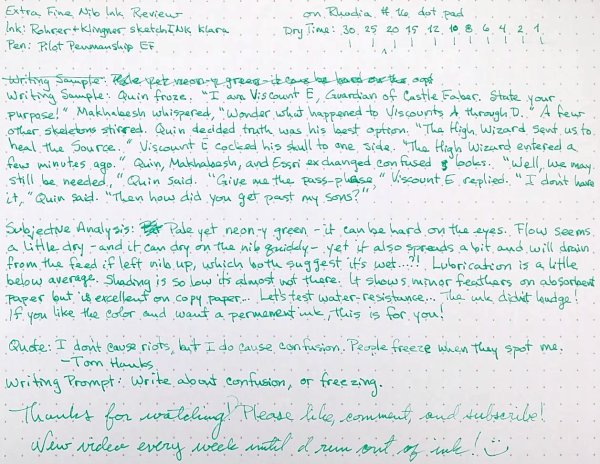 Extra Fine Nib Ink Review
on Rhodia #16 dot pad
Ink: Rohrer + Klingner, sketchINK Klara
Dry Time: 30. 25 20 15 12. 10 8 6 4 2. 1
Pen: Pilot Penmanship EF
Writing Sample: Pale yet neon-y green - it can be hard on the oops
Writing Sample: Quin froze. "I am Viscount E, Guardian of Castle Faber. State your
purpose!" Makhabesh whispered, "Wonder what happened to Viscounts A through D." A few
other skeletons stirred. Quin decided truth was his best option. "The High Wizard sent us to
heal the Source." Viscount E cocked his skull to one side. "The High Wizard entered a
few minutes ago." Quin, Makhabesh, and Essri exchanged confused looks. "Well, we may
still be needed," Quin said. "Give me the pass-phrase," Viscount E replied. "I don't have
it," Quin said. "Then how did you get past my sons?"
Subjective Analysis: Pale yet neon-y green - it can be hard on the eyes. Flow seems
a little dry - and it can dry on the nib quickly - yet it also spreads a bit and will drain
from the feed if left nib up, which both suggest it's wet...?! Lubrication is a little
below average. Shading is so low it's almost not there. It shows minor feathers on absorbent
paper but is excellent on copy paper... Let's test water-resistance... The ink didn't budge!
If you like the color and want a permanent ink, this is for you!
Quote: I don't cause riots, but I do cause confusion. People freeze when they spot me.
-Tom Hanks
Writing Prompt: Write about confusion, or freezing.
Thanks for watching! Please like, comment, and subscribe!
New video every week until I run out of ink!